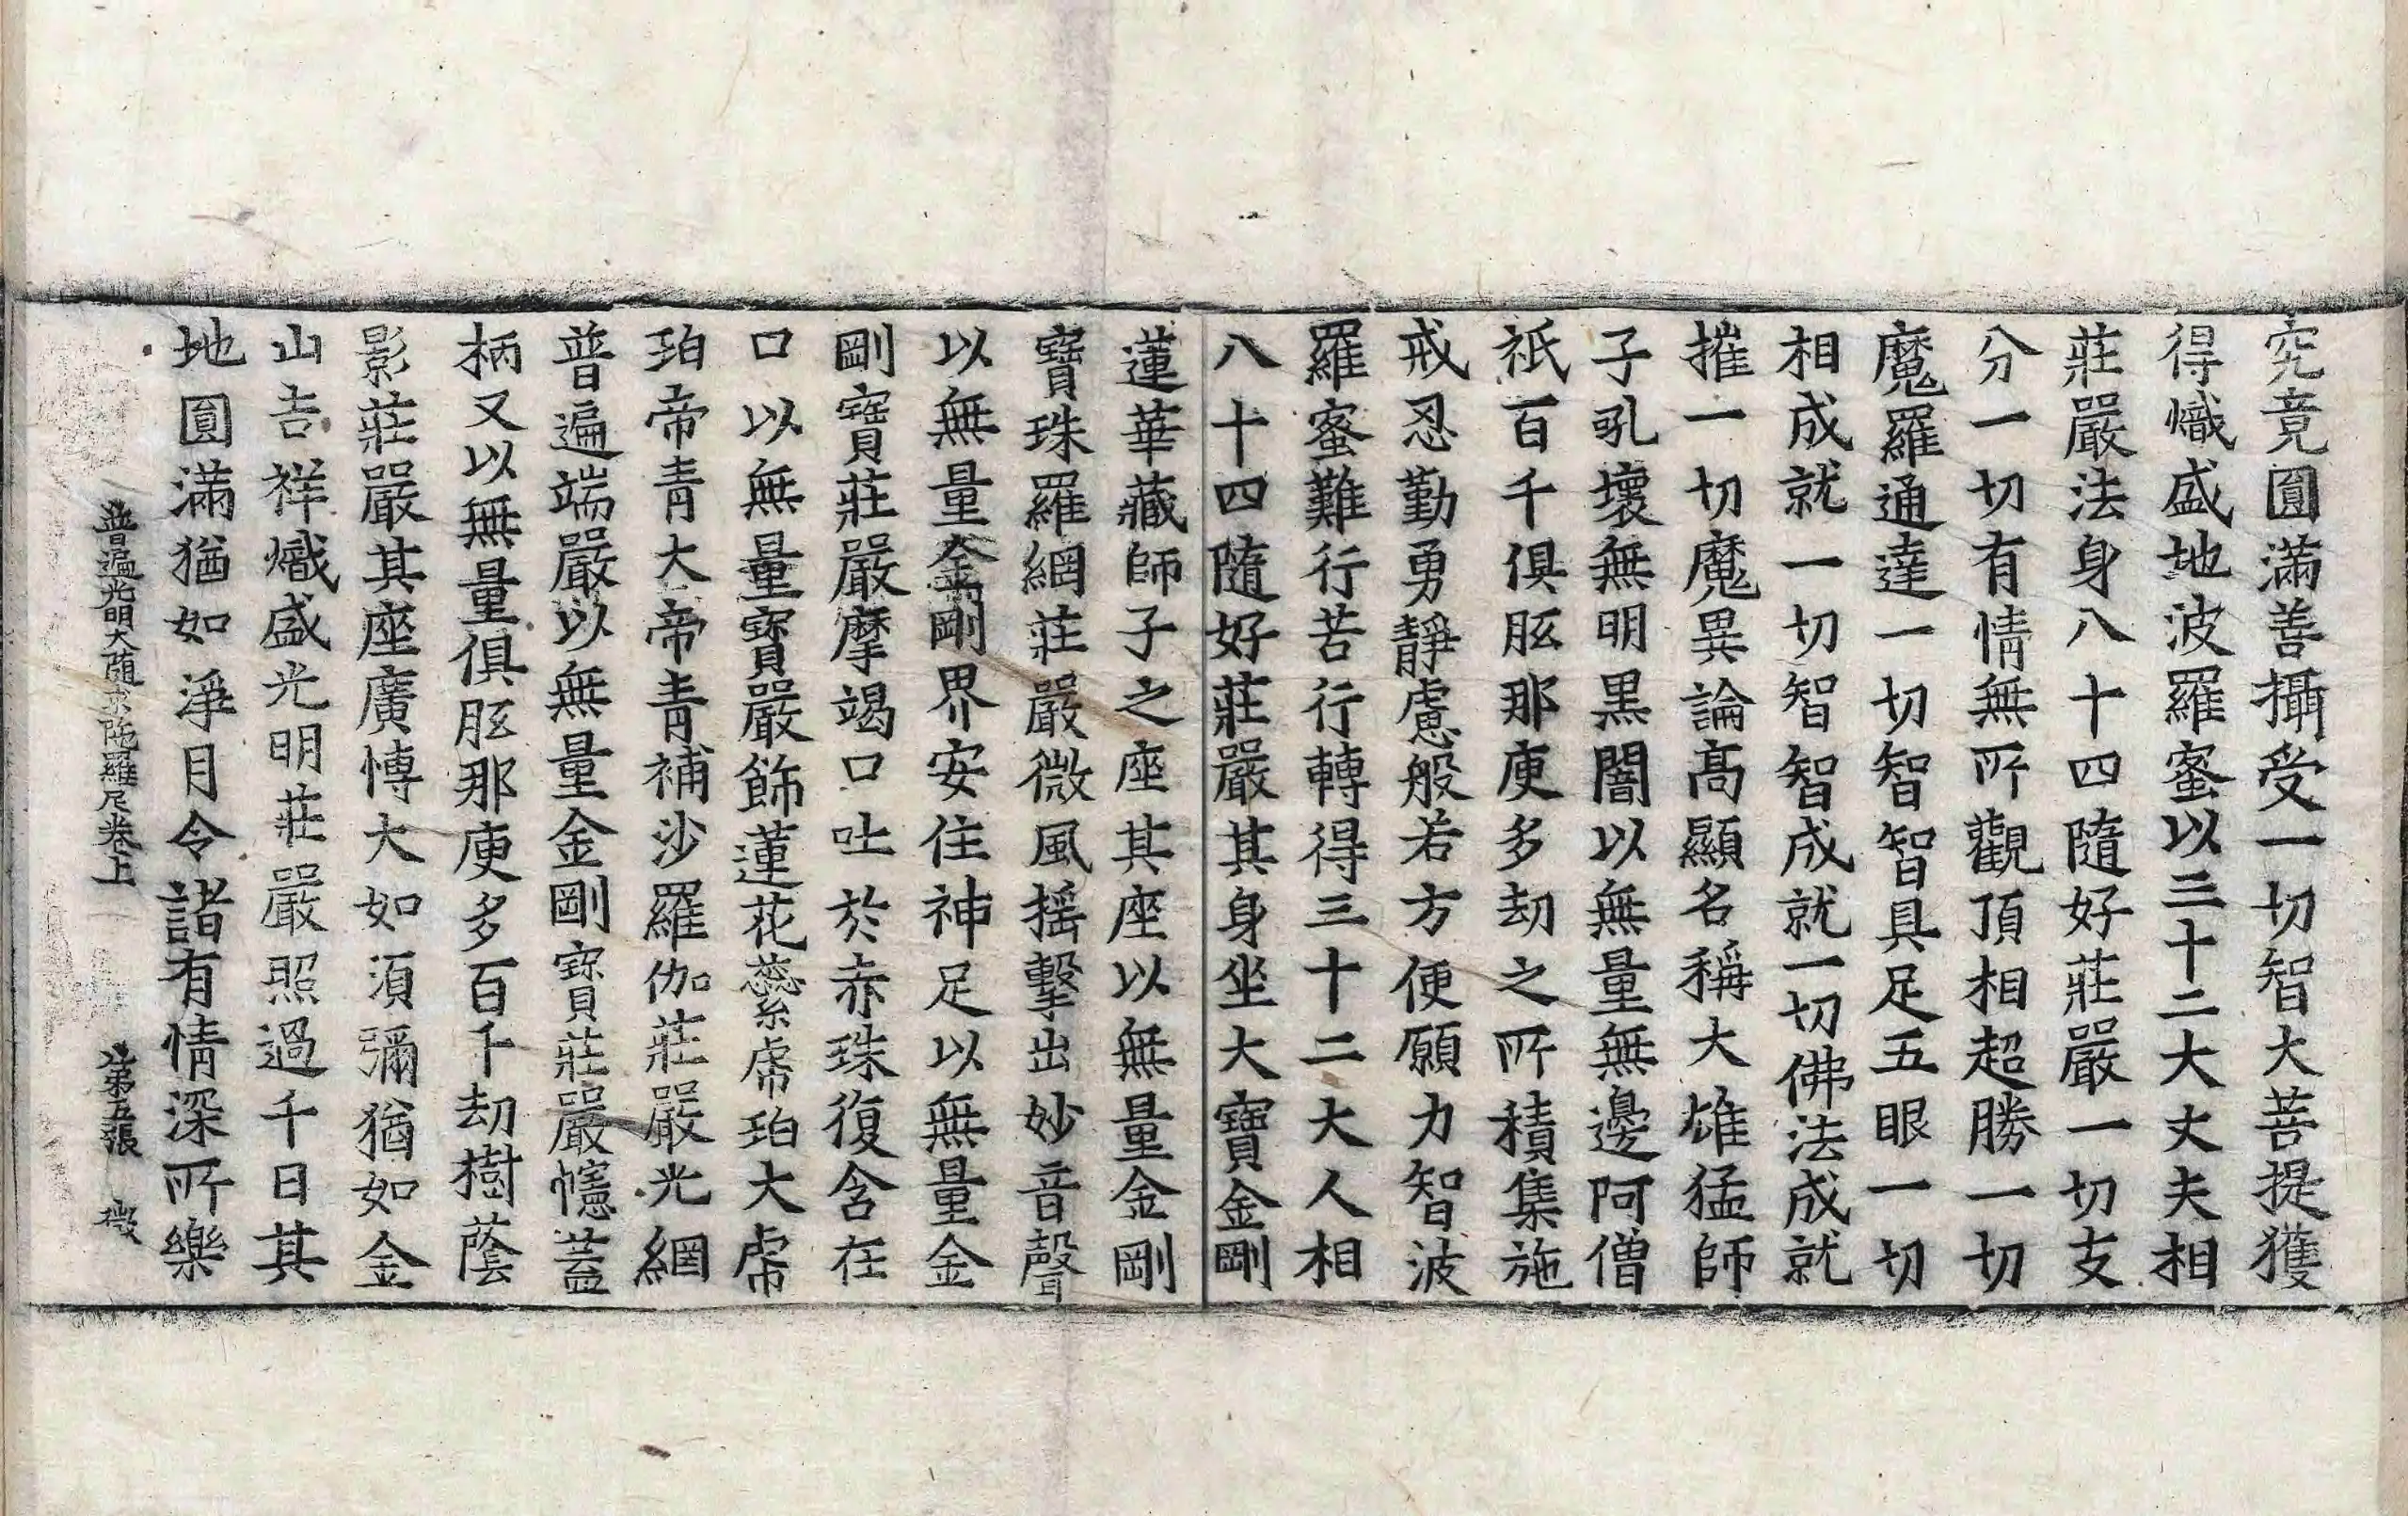 究竟圓滿善攝受一切智大菩提獲
得熾盛地波羅蜜以三十二大丈夫相
莊嚴法身八十四隨好莊嚴一切支
分一切有情無所觀頂相超勝一切
魔羅通達一切智智具足五眼一切
相成就一切智智成就一切佛法成就
摧一切魔異論高顯名稱大雄猛師
子吼壞無明黑闇以無量無邊阿僧
祇百千俱胝那庾多劫之所積集施
戒忍勤勇靜慮般若方便願力智波
羅蜜難行苦行轉得三十二大人相
八十四隨好莊嚴其身坐大寶金剛
蓮華藏師子之座其座以無量金剛
寶珠羅網莊嚴微風搖擊出妙音聲
以無量金剛界安住神足以無量金
剛寶莊嚴摩竭口吐於赤珠復含在
口以無量寶嚴飾蓮花蘂虎珀大虎
珀帝青大帝青補沙羅伽莊嚴光網
普遍端嚴以無量金剛寶莊嚴幰蓋
柄又以無量俱胝那庾多百千劫樹蔭
影莊嚴其座廣博大如須彌猶如金
山吉祥熾盛光明莊嚴照過千日其
地圓滿猶如淨月令諸有情深所樂
普遍光明大隨求陀羅尼卷上 第五張